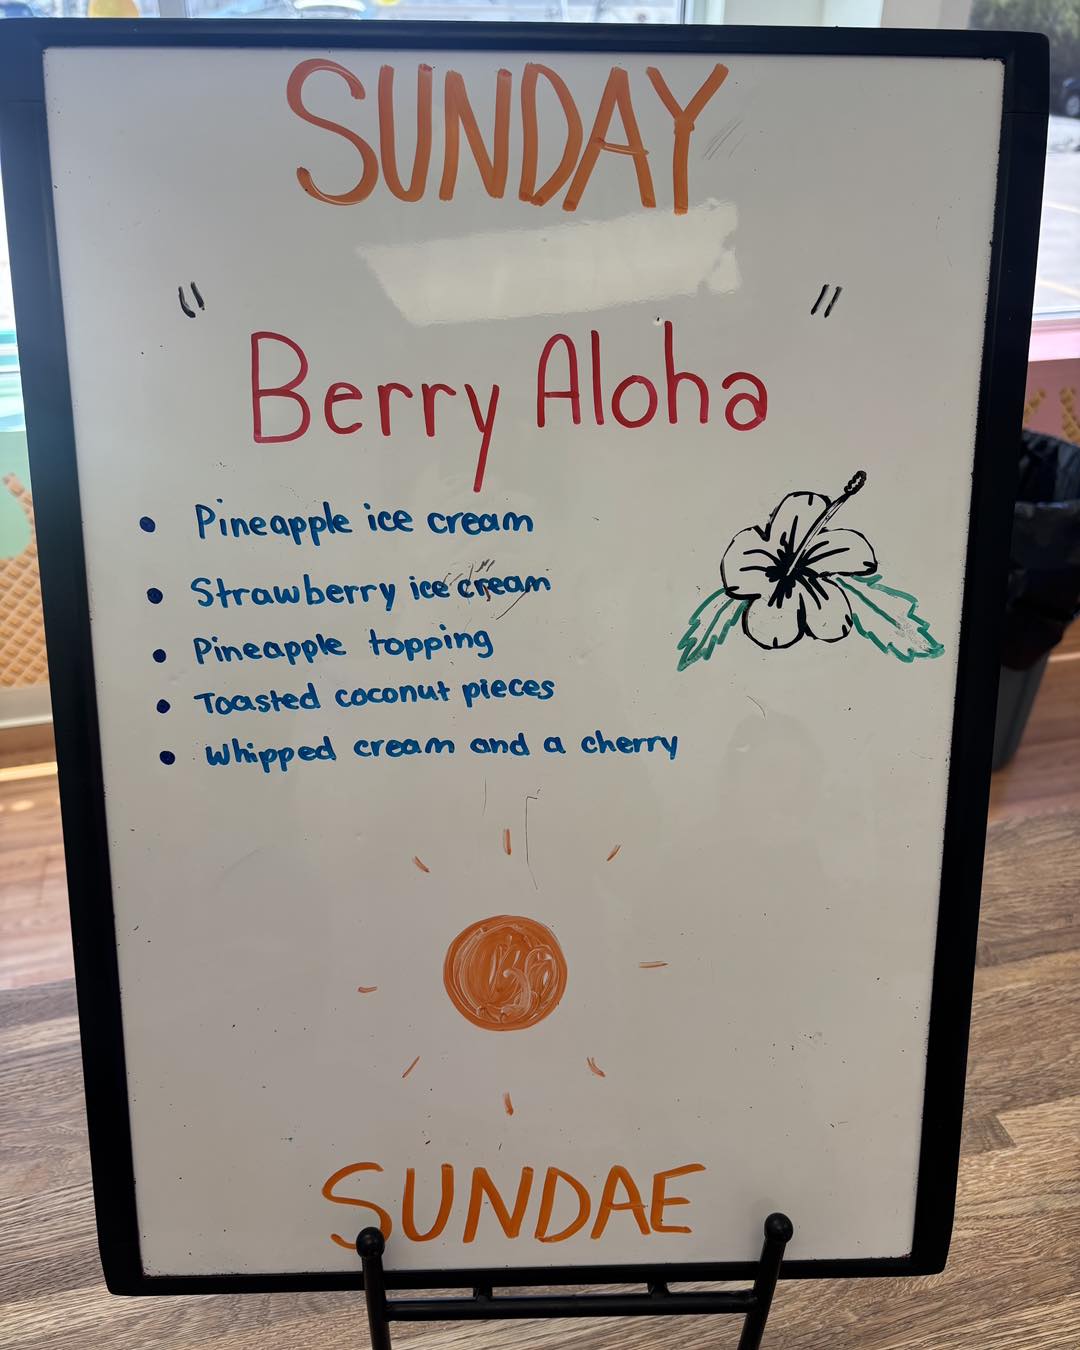 SUNDAY
"Berry Aloha"
• Pineapple ice cream
• Strawberry ice cream
• Pineapple topping
• Toasted coconut pieces
• Whipped cream and a cherry
SUNDAE